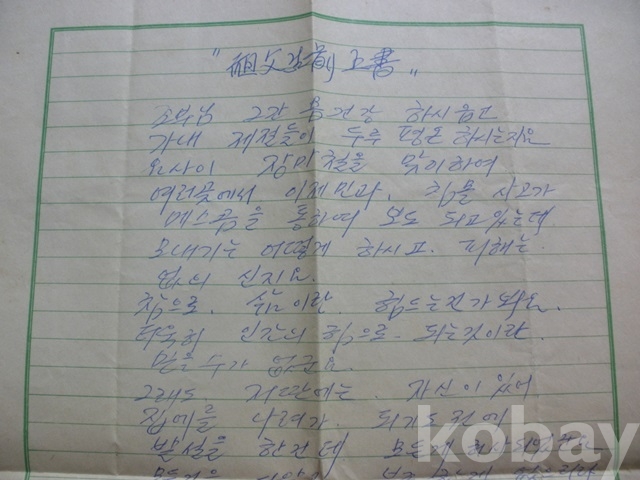 "祖父님前上書"
조부님 그간 옥건강 하시옵고
가내 제절들이 두루 평온 하시는지요
요사이 장마철을 맞이하여
여러곳에서 이재민과, 침몰 사고가
매스콤을 통하여 보도 되고 있는데
모내기는 어떻게 하시고. 피해는.
없으 신지요.
참으로. 삶이란. 힘드는건가 봐요.
더욱히 인간의 힘으로. 되는것이란.
믿을 수가 없군요.
그래도. 저딴에는. 자신이 있어
집에를 나려가. 되기도 전에
발설을 한건데 모든게 허사
kobay